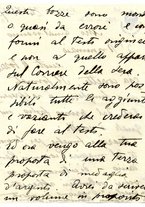 Queste bozze sono monde
o quasi da errori e con-
formi al testo originale
e non a quello apparso
sul Corriere della sera.
Naturalmente sono pos-
sibili tutte le aggiunte
e varianti che crederai
di fare al testo.
Ed ora vengo alla tua
proposta di una terza
proposta di medaglia
d'argento. Avrei da scriver
un volume in proposito